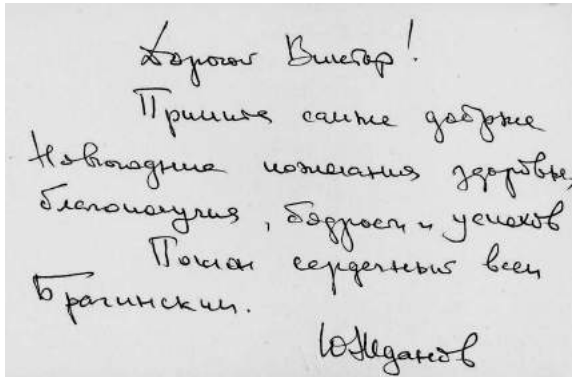 Дорогой Виктор!
Примите самые добрые
Новогодние пожелания здоровья,
благополучия, бодрости и успехов
Поклон сердечный всем
Брагинским.
ЮЖданов